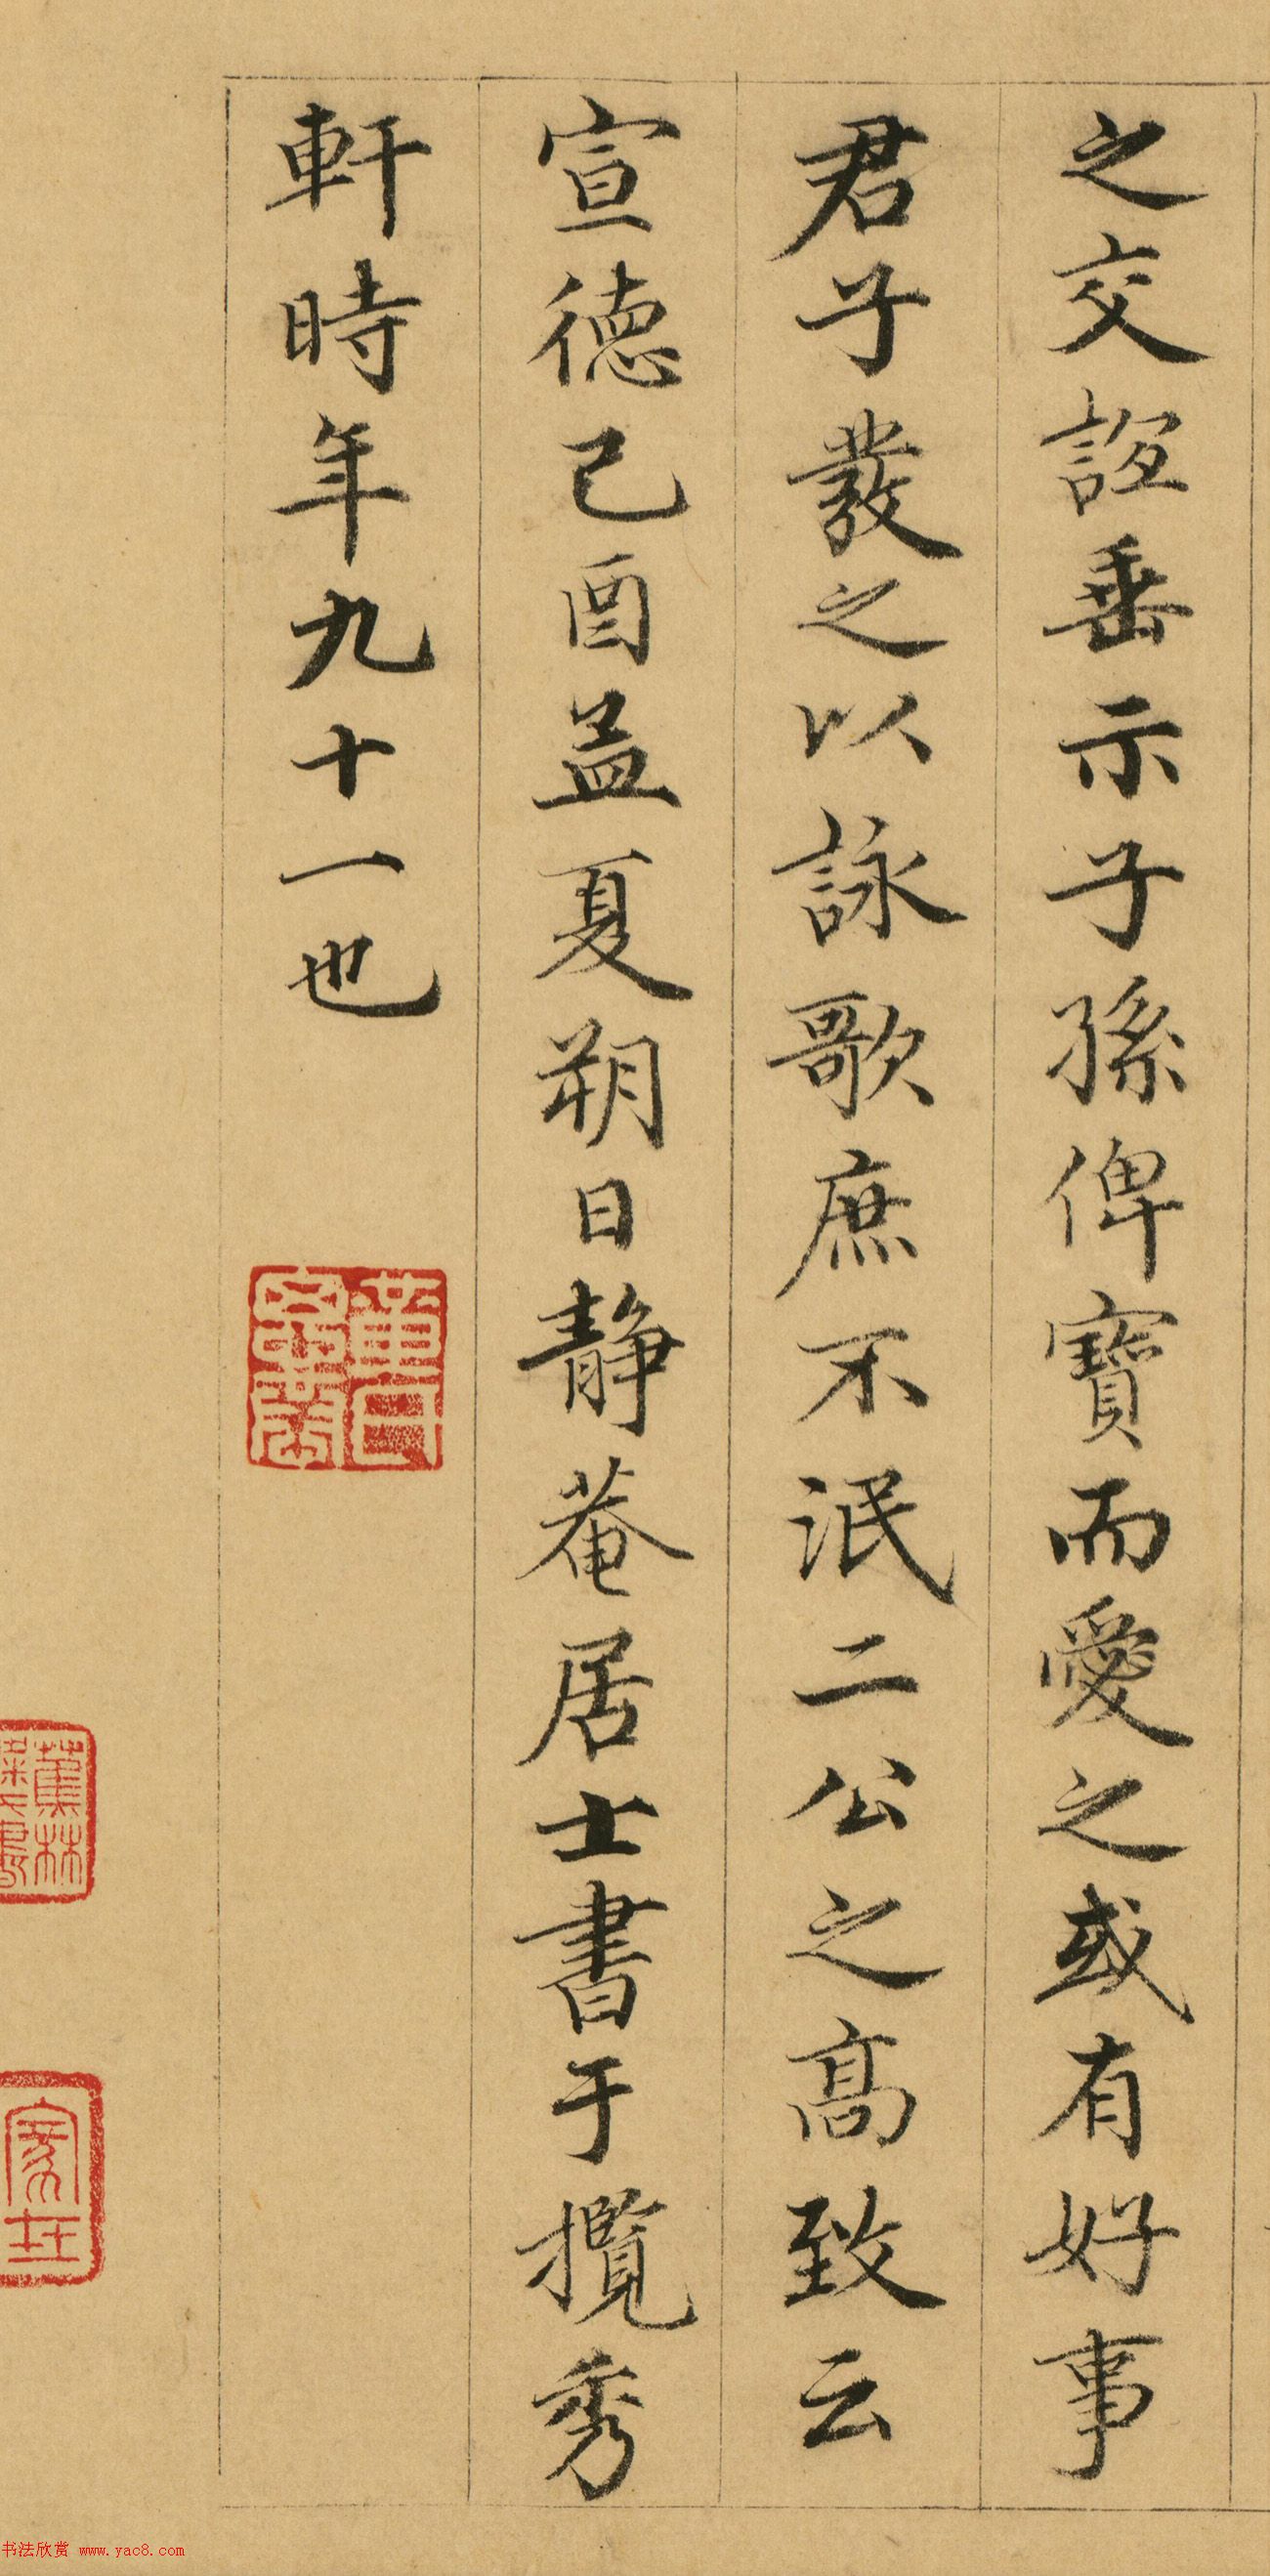 之交誼垂示子孫俾寶而愛之或有好事
君子發之以詠歌庶不泯二公之高致云
宣德己酉孟夏朔日靜菴居士書于攬秀
軒時年九十一也
蕉林
家在
书法欣赏 www.yac8.com